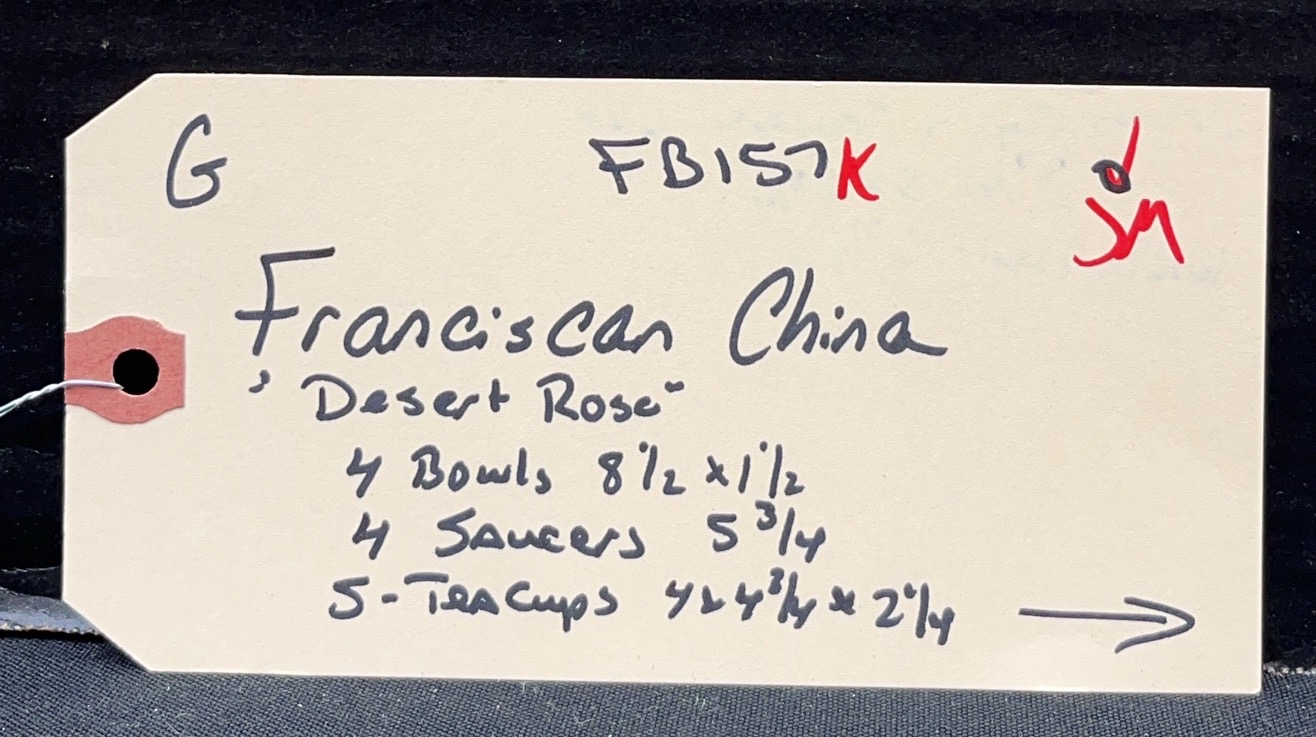 G FB157K
JM
Franciscan China
"Desert Rose"
4 Bowls 8 1/2 x 1 1/2
4 Saucers 5 3/4
5 - Tea Cups 4 x 4 3/4 x 2 1/4 →